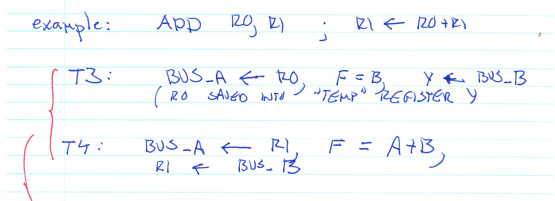 example: ADD R0, R1 ; R1 ← R0+R1
T3: BUS_A ← R0, F = B, Y ← BUS_B
( R0 SAVED INTO "TEMP" REGISTER Y
T4: BUS_A ← R1, F = A+B,
R1 ← BUS_B